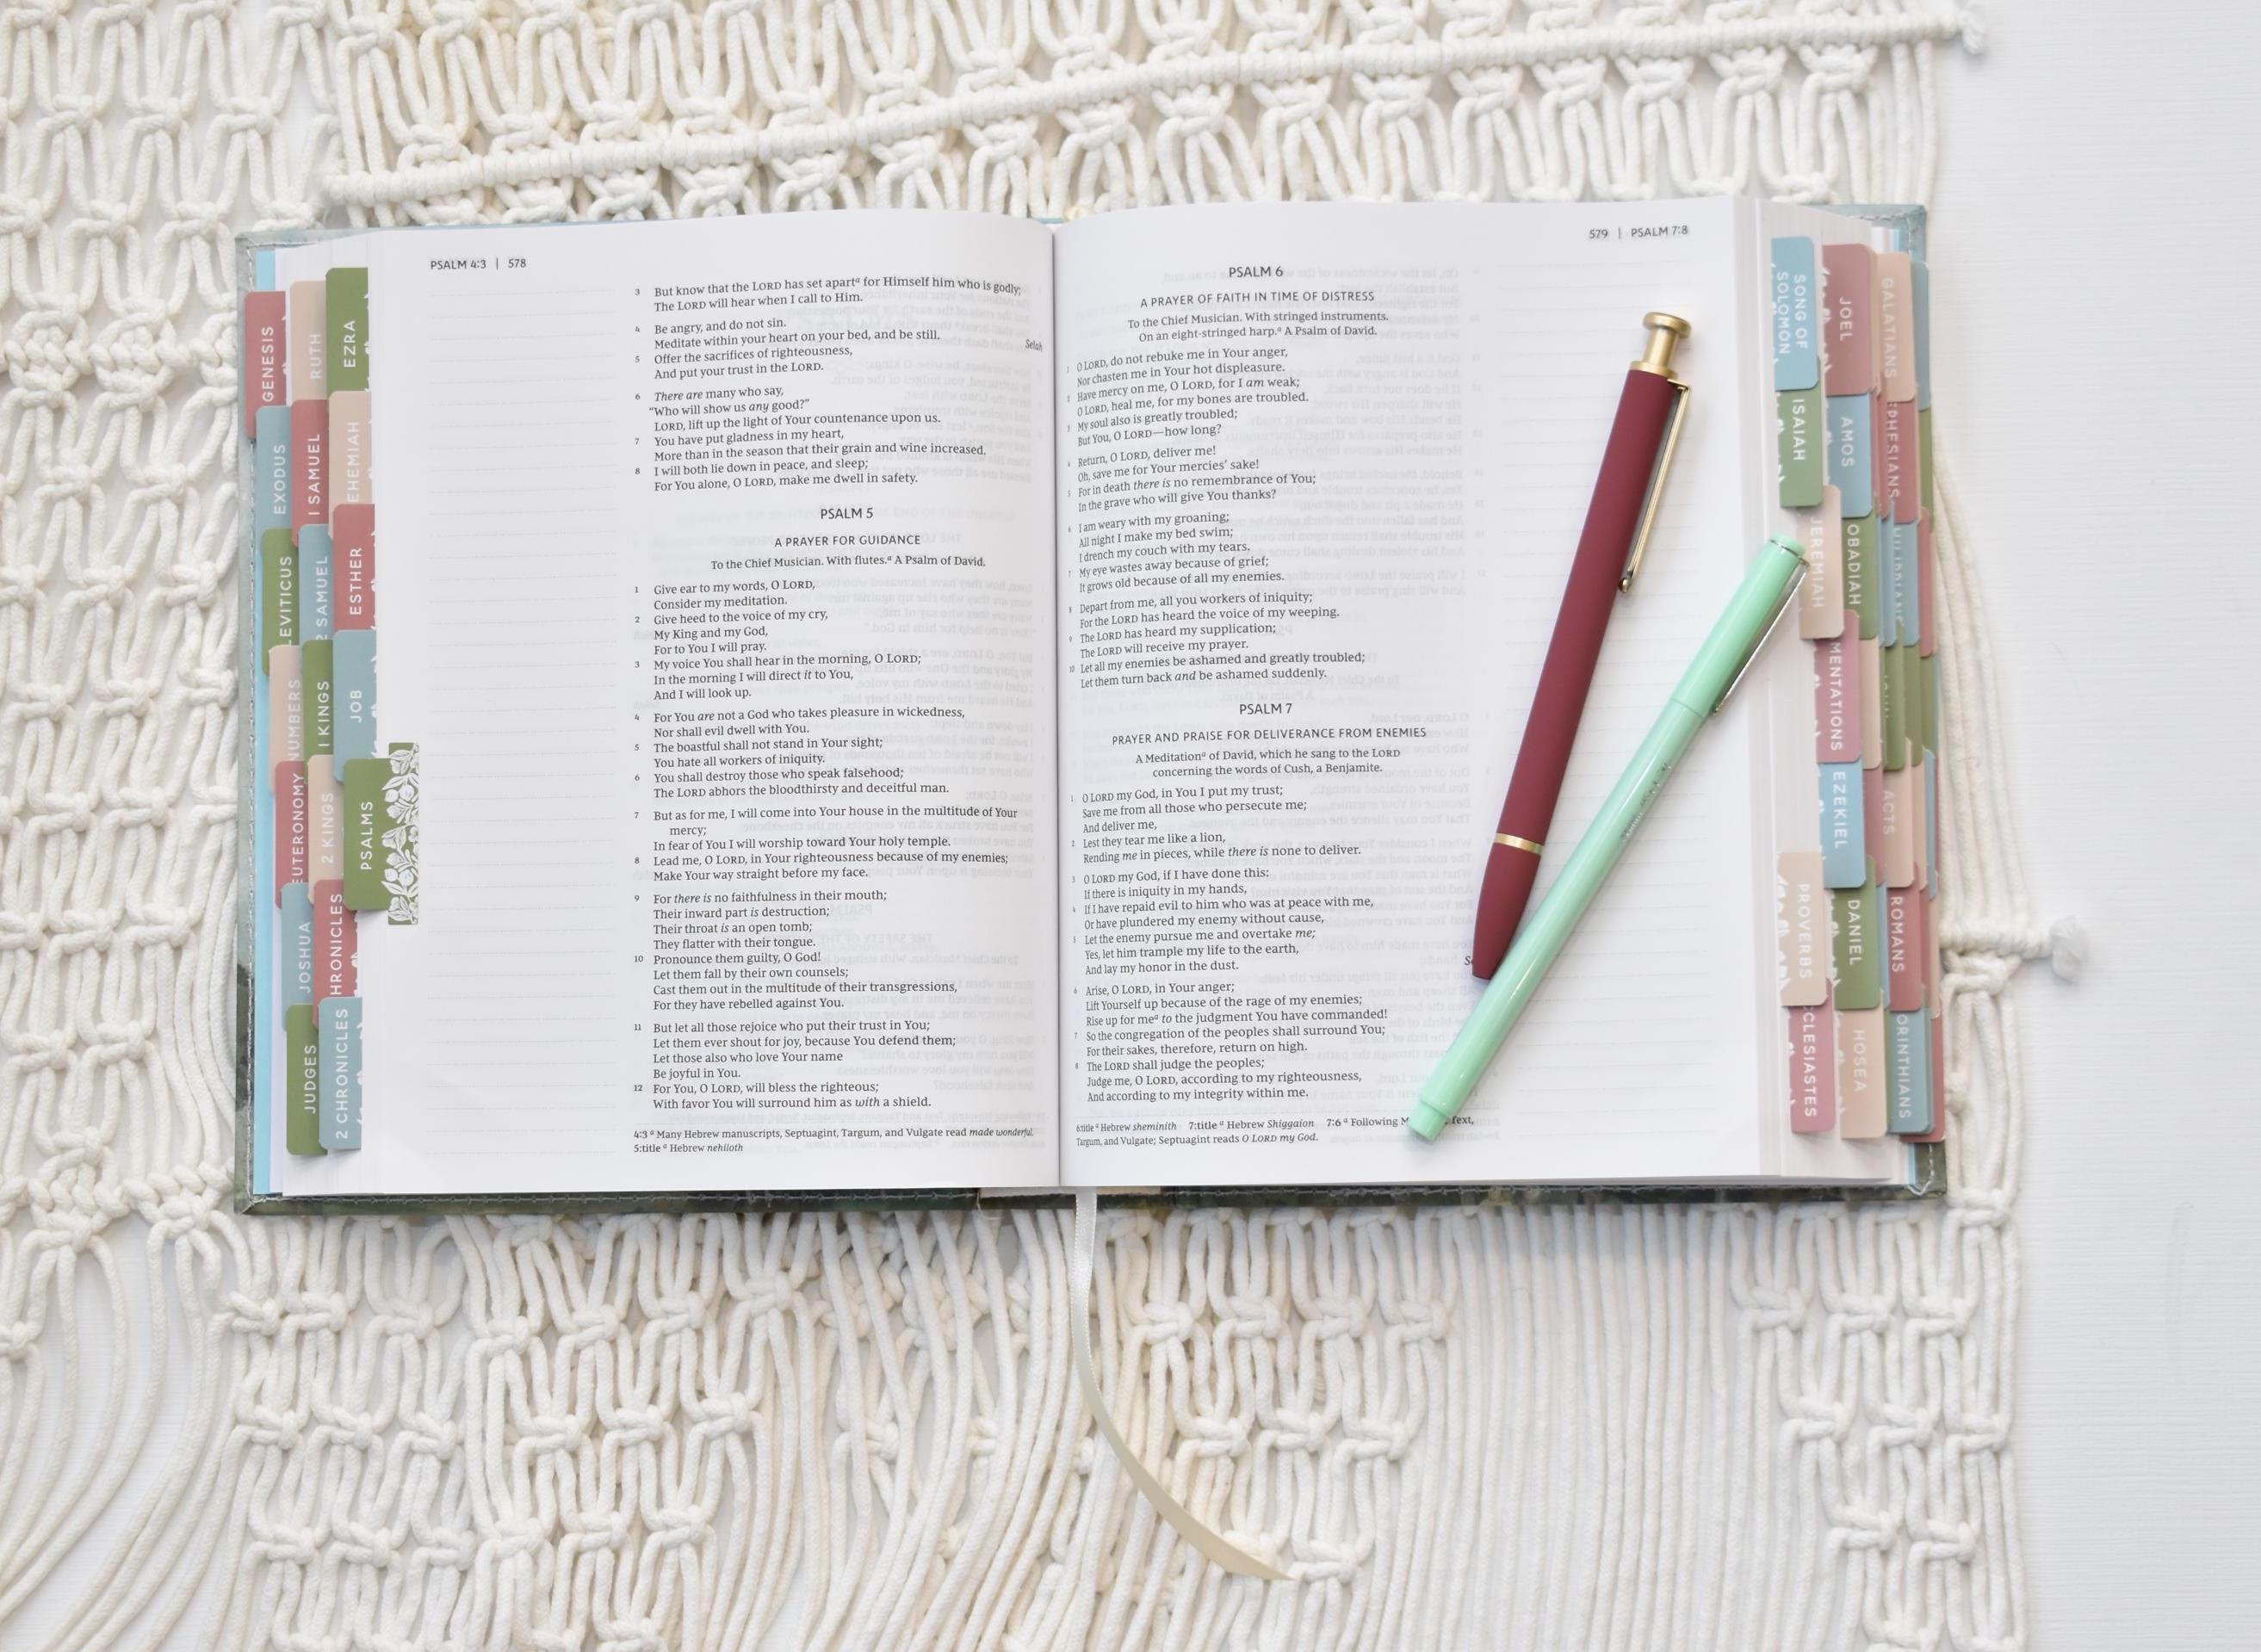 PSALM 4:3 | 578
3 But know that the LORD has set apartᵃ for Himself him who is godly;
The LORD will hear when I call to Him.
4 Be angry, and do not sin.
Meditate within your heart on your bed, and be still.
Selah
5 Offer the sacrifices of righteousness,
And put your trust in the LORD.
6 There are many who say,
“Who will show us any good?”
LORD, lift up the light of Your countenance upon us.
7 You have put gladness in my heart,
More than in the season that their grain and wine increased.
8 I will both lie down in peace, and sleep;
For You alone, O LORD, make me dwell in safety.
PSALM 5
A PRAYER FOR GUIDANCE
To the Chief Musician. With flutes.ᵃ A Psalm of David.
1 Give ear to my words, O LORD,
Consider my meditation.
2 Give heed to the voice of my cry,
My King and my God,
For to You I will pray.
3 My voice You shall hear in the morning, O LORD;
In the morning I will direct it to You,
And I will look up.
4 For You are not a God who takes pleasure in wickedness,
Nor shall evil dwell with You.
5 The boastful shall not stand in Your sight;
You hate all workers of iniquity.
6 You shall destroy those who speak falsehood;
The LORD abhors the bloodthirsty and deceitful man.
7 But as for me, I will come into Your house in the multitude of Your
mercy;
In fear of You I will worship toward Your holy temple.
8 Lead me, O LORD, in Your righteousness because of my enemies;
Make Your way straight before my face.
9 For there is no faithfulness in their mouth;
Their inward part is destruction;
Their throat is an open tomb;
They flatter with their tongue.
10 Pronounce them guilty, O God!
Let them fall by their own counsels;
Cast them out in the multitude of their transgressions,
For they have rebelled against You.
11 But let all those rejoice who put their trust in You;
Let them ever shout for joy, because You defend them;
Let those also who love Your name
Be joyful in You.
12 For You, O LORD, will bless the righteous;
With favor You will surround him as with a shield.
4:3 ᵃ Many Hebrew manuscripts, Septuagint, Targum, and Vulgate read made wonderful.
5:title ᵃ Hebrew nehiloth
579 | PSALM 7:8
PSALM 6
A PRAYER OF FAITH IN TIME OF DISTRESS
To the Chief Musician. With stringed instruments.
On an eight-stringed harp.ᵃ A Psalm of David.
1 O LORD, do not rebuke me in Your anger,
Nor chasten me in Your hot displeasure.
2 Have mercy on me, O LORD, for I am weak;
O LORD, heal me, for my bones are troubled.
3 My soul also is greatly troubled;
But You, O LORD—how long?
4 Return, O LORD, deliver me!
Oh, save me for Your mercies’ sake!
5 For in death there is no remembrance of You;
In the grave who will give You thanks?
6 I am weary with my groaning;
All night I make my bed swim;
I drench my couch with my tears.
7 My eye wastes away because of grief;
It grows old because of all my enemies.
8 Depart from me, all you workers of iniquity;
For the LORD has heard the voice of my weeping.
9 The LORD has heard my supplication;
The LORD will receive my prayer.
10 Let all my enemies be ashamed and greatly troubled;
Let them turn back and be ashamed suddenly.
PSALM 7
PRAYER AND PRAISE FOR DELIVERANCE FROM ENEMIES
A Meditationᵃ of David, which he sang to the LORD
concerning the words of Cush, a Benjamite.
1 O LORD my God, in You I put my trust;
Save me from all those who persecute me;
And deliver me,
2 Lest they tear me like a lion,
Rending me in pieces, while there is none to deliver.
3 O LORD my God, if I have done this:
If there is iniquity in my hands,
4 If I have repaid evil to him who was at peace with me,
Or have plundered my enemy without cause,
5 Let the enemy pursue me and overtake me;
Yes, let him trample my life to the earth,
And lay my honor in the dust.
6 Arise, O LORD, in Your anger;
Lift Yourself up because of the rage of my enemies;
Rise up for meᵃ to the judgment You have commanded!
7 So the congregation of the peoples shall surround You;
For their sakes, therefore, return on high.
8 The LORD shall judge the peoples;
Judge me, O LORD, according to my righteousness,
And according to my integrity within me.
6:title ᵃ Hebrew sheminith 7:title ᵃ Hebrew Shiggaion 7:6 ᵃ Following
Targum, and Vulgate; Septuagint reads O LORD my God.
GENESIS
EXODUS
LEVITICUS
NUMBERS
EUTERONOMY
JOSHUA
JUDGES
RUTH
1 SAMUEL
2 SAMUEL
1 KINGS
2 KINGS
HRONICLES
2 CHRONICLES
EZRA
EHEMIAH
ESTHER
JOB
PSALMS
SONG OF
SOLOMON
ISAIAH
JEREMIAH
MENTATIONS
EZEKIEL
PROVERBS
CLESIASTES
JOEL
AMOS
OBADIAH
DANIEL
HOSEA
GALATIANS
EPHESIANS
ACTS
ROMANS
ORINTHIANS